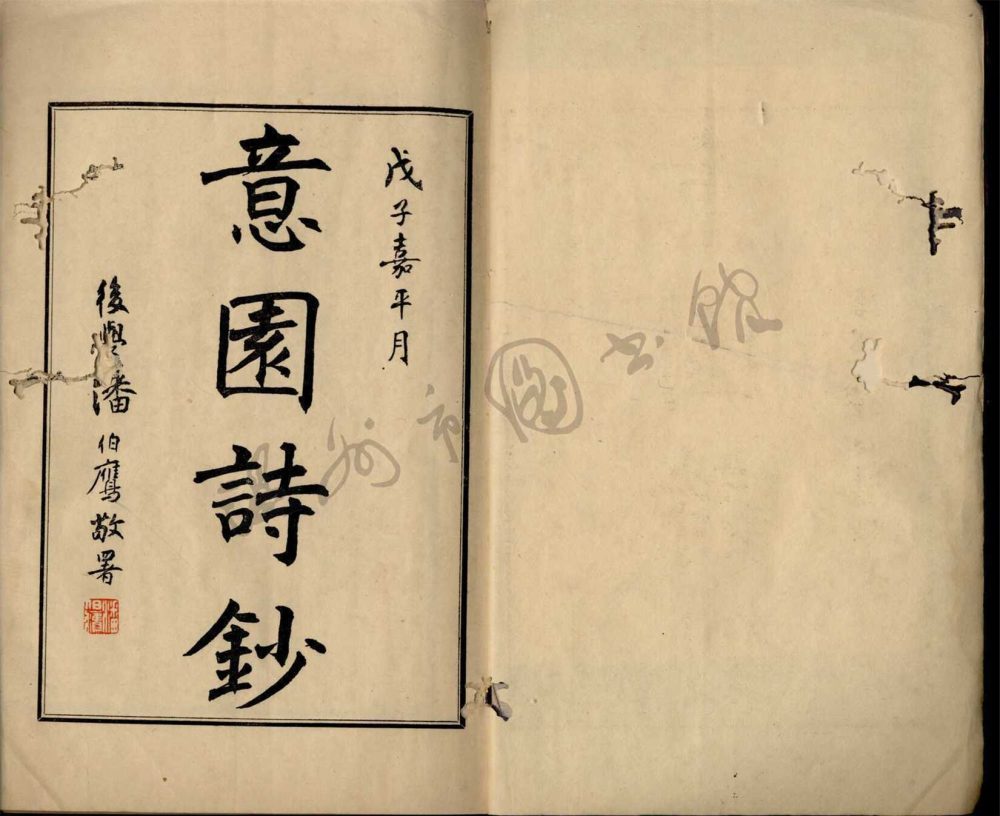 戊子嘉平月
意園詩鈔
後學潘伯鷹敬署
州市圖书館